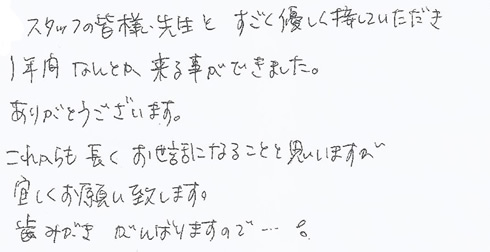 スタッフの皆様、先生と すごく優しく接していただき
1年間 なんとか 来る事ができました。
ありがとうございます。
これからも 長く お世話になることと思いますが
宜しくお願い致します。
歯みがき がんばりますので…。